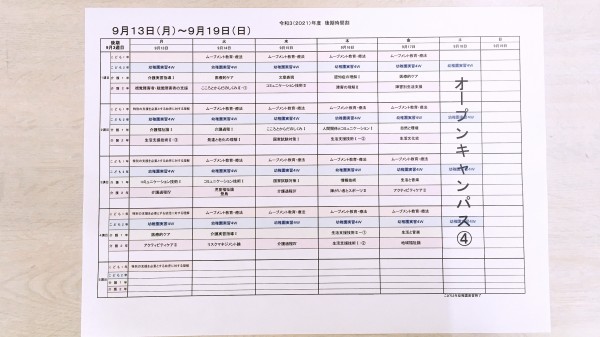 令和3(2021)年度 後期時間割
9月13日(月)～9月19日(日)
後期
9月3週目
月 火 水 木 金 土 日
9月13日 9月14日 9月15日 9月16日 9月17日 9月18日 9月19日
ムーブメント教育・療法 ムーブメント教育・療法 ムーブメント教育・療法 ムーブメント教育・療法
幼稚園実習4W 幼稚園実習4W 幼稚園実習4W 幼稚園実習4W 幼稚園実習4W 幼稚園実習4W
介護実習指導Ⅰ 医療的ケア 文章表現 認知症の理解Ⅱ 医療的ケア
こころとからだのしくみⅡ-① コミュニケーション技術Ⅱ 障害の理解Ⅱ 障害別生活支援
特別の支援を必要とする幼児に対する理解 ムーブメント教育・療法 ムーブメント教育・療法 ムーブメント教育・療法 ムーブメント教育・療法
幼稚園実習4W 幼稚園実習4W 幼稚園実習4W 幼稚園実習4W 幼稚園実習4W 幼稚園実習4W
介護福祉論Ⅰ 介護過程Ⅰ こころとからだのしくみⅠ 人間関係とコミュニケーションⅠ 自然と環境
生活支援技術Ⅱ-① 発達と老化の理解Ⅰ 国家試験対策Ⅰ 生活支援技術Ⅰ-② 生活文化史
ムーブメント教育・療法 ムーブメント教育・療法 ムーブメント教育・療法 ムーブメント教育・療法
幼稚園実習4W 幼稚園実習4W 幼稚園実習4W 幼稚園実習4W 幼稚園実習4W 幼稚園実習4W
コミュニケーション技術Ⅰ コミュニケーション技術Ⅰ 国家試験対策Ⅰ 情報技術 生活と音楽
介護過程Ⅳ 介護過程Ⅳ 障がい者とスポーツⅡ アクティビティケアⅡ
ムーブメント教育・療法 ムーブメント教育・療法 ムーブメント教育・療法 ムーブメント教育・療法
幼稚園実習4W 幼稚園実習4W 幼稚園実習4W 幼稚園実習4W 幼稚園実習4W
医療的ケア 介護実習指導Ⅰ 生活支援技術Ⅱ-① 生活と音楽
アクティビティケアⅡ リスクマネジメント論 介護過程Ⅳ 生活支援技術Ⅰ-② 地域福祉論
特別の支援を必要とする幼児に対する理解
オープンキャンパス④
こども2年幼稚園実習終了